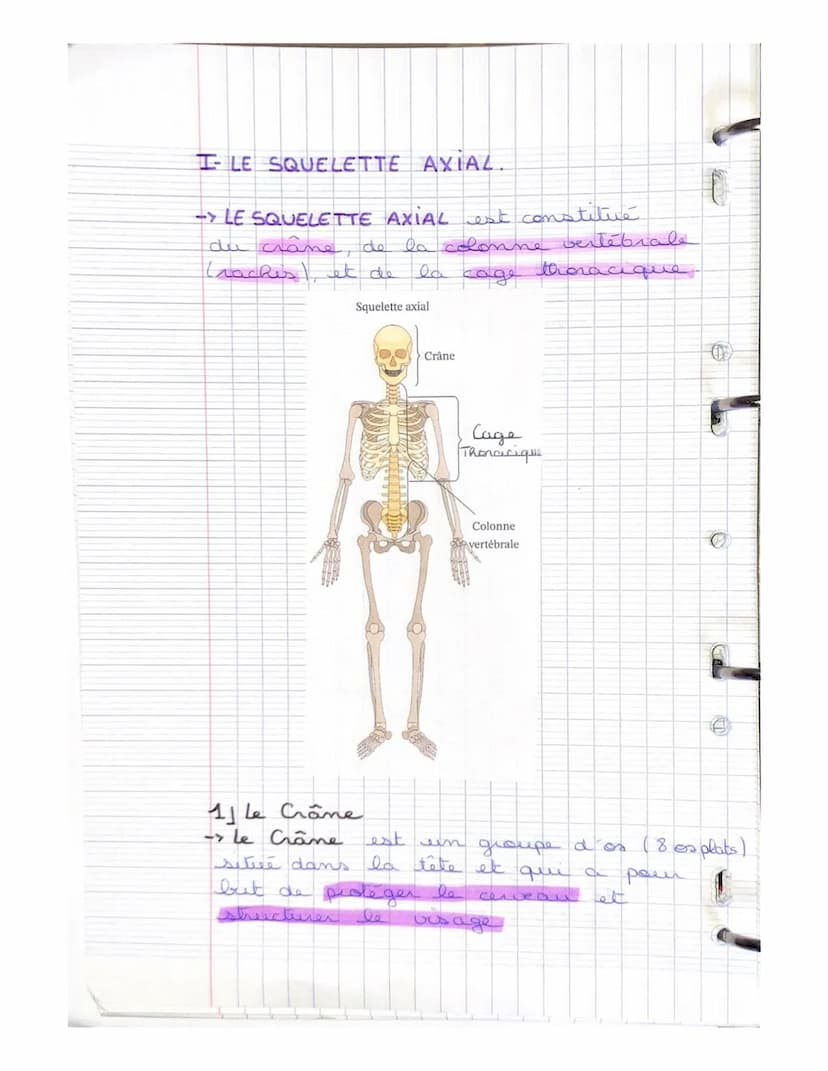 I- LE SQUELETTE AXIAL.
-> LE SQUELETTE AXIAL est constitué
du crâne, de la colonne vertébrale
(rachis), et de la cage thoracique.
Squelette axial
Crâne
Cage
Thoracique
Colonne
vertébrale
1) Le Crâne
-> Le Crâne est un groupe d'os (8 os plats)
situé dans la tête et qui a pour
but de protéger le cerveau et
structurer le visage